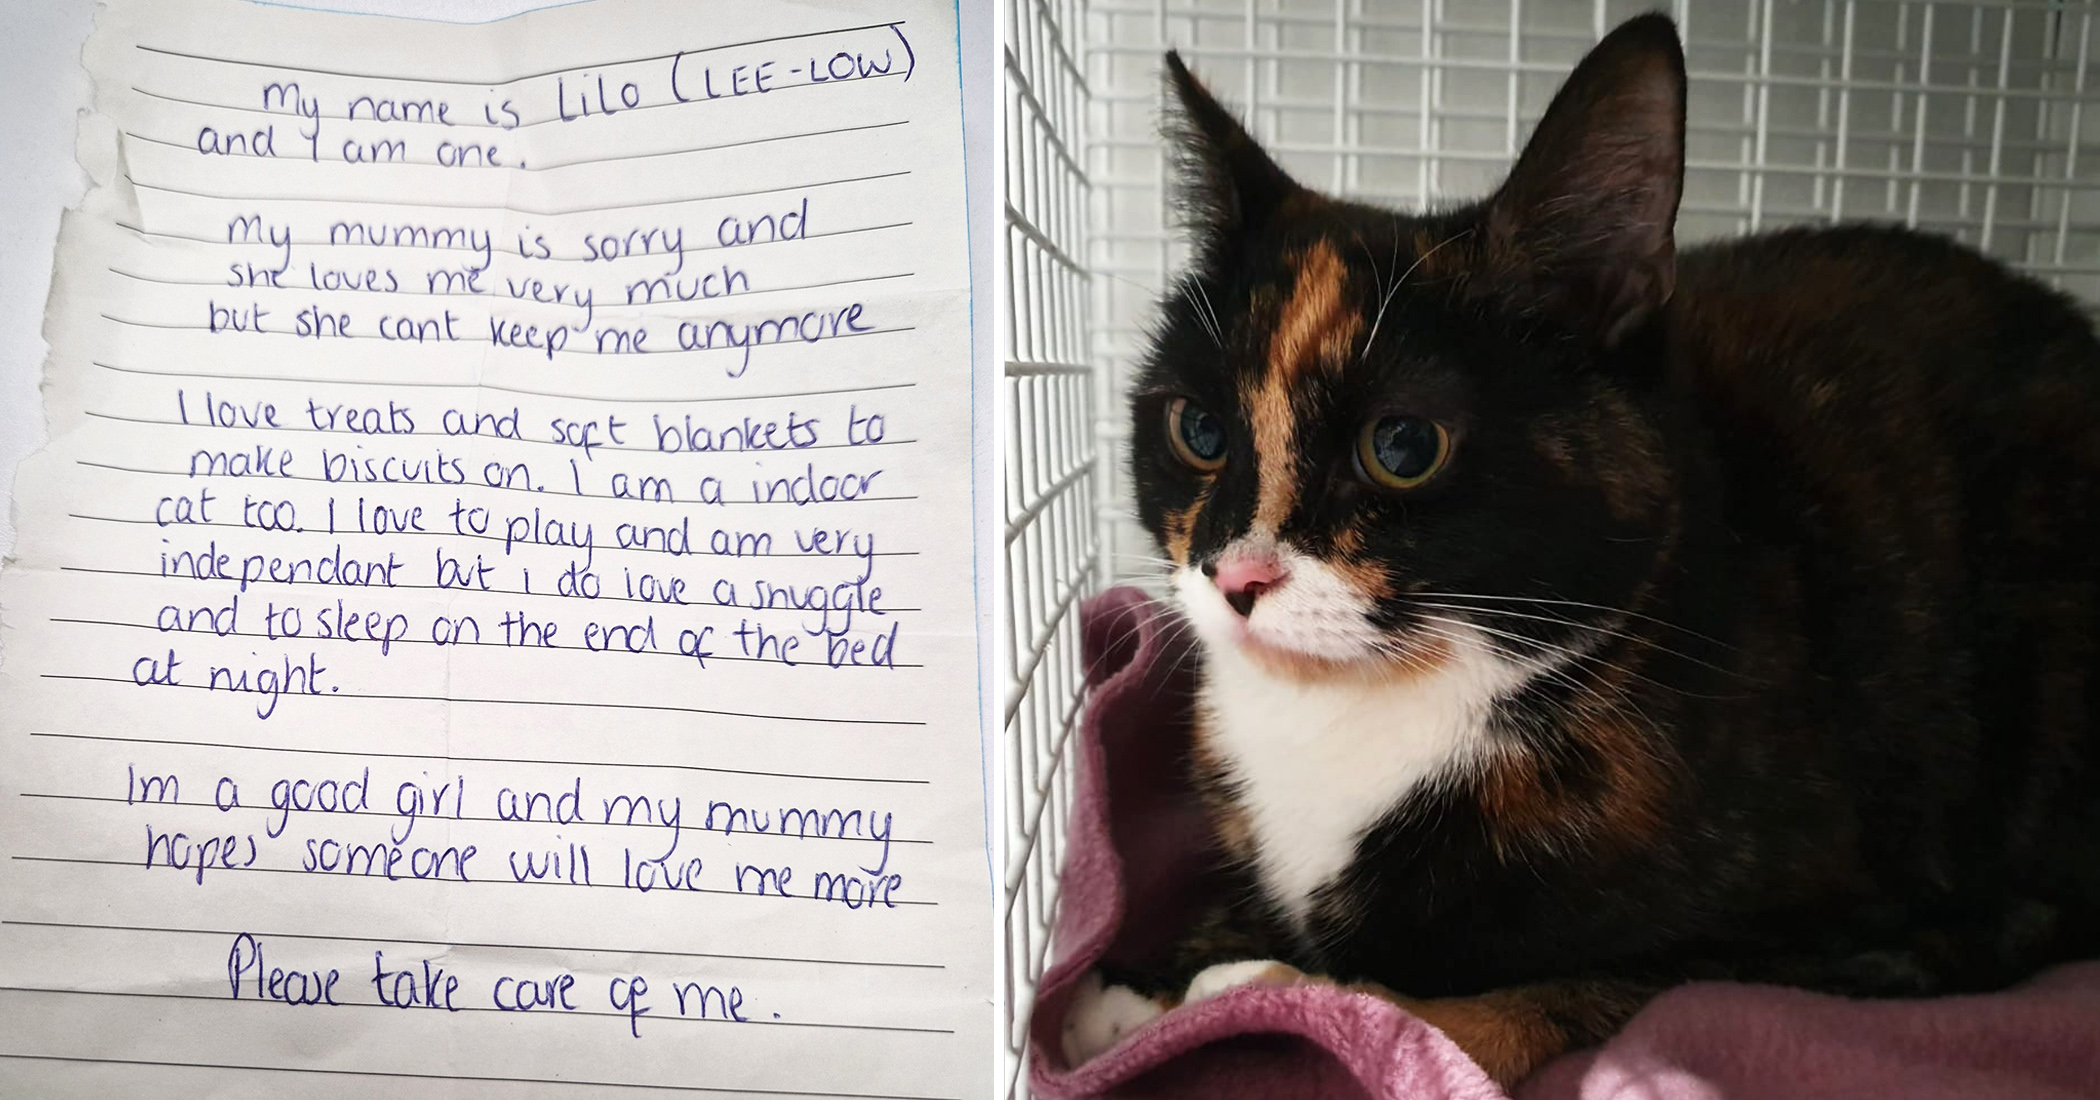 My name is Lilo (LEE-LOW)
and I am one.
My mummy is sorry and
she loves me very much
but she cant keep me anymore
I love treats and soft blankets to
make biscuits on. I am a indoor
cat too. I love to play and am very
independant but i do love a snuggle
and to sleep on the end of the bed
at night.
Im a good girl and my mummy
hopes someone will love me more
Please take care of me.